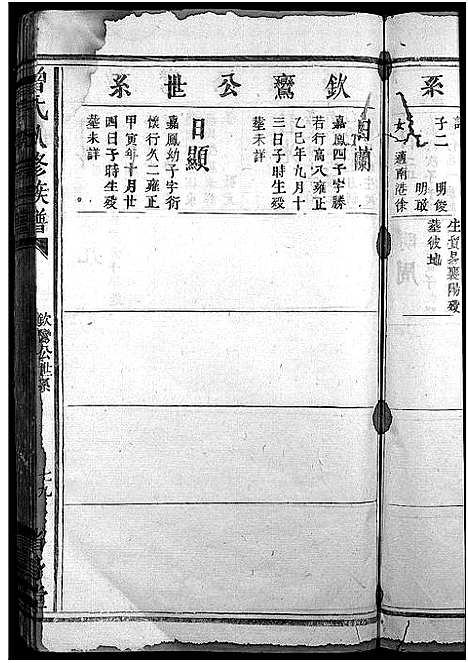 系
子二
明俊
明戝
女
適南港徐
生貿易襄陽歿
墓彼地
欽鸞公世系
蘭
嘉鳳四子字勝
若行高八雍正
乙巳年九月十
三日子時生歿
塟未詳
日顯
嘉鳳幼子字衍
懷行久二雍正
甲寅年十月廿
四日子時生歿
塟未詳
氏八修族譜
欽鸞公世系